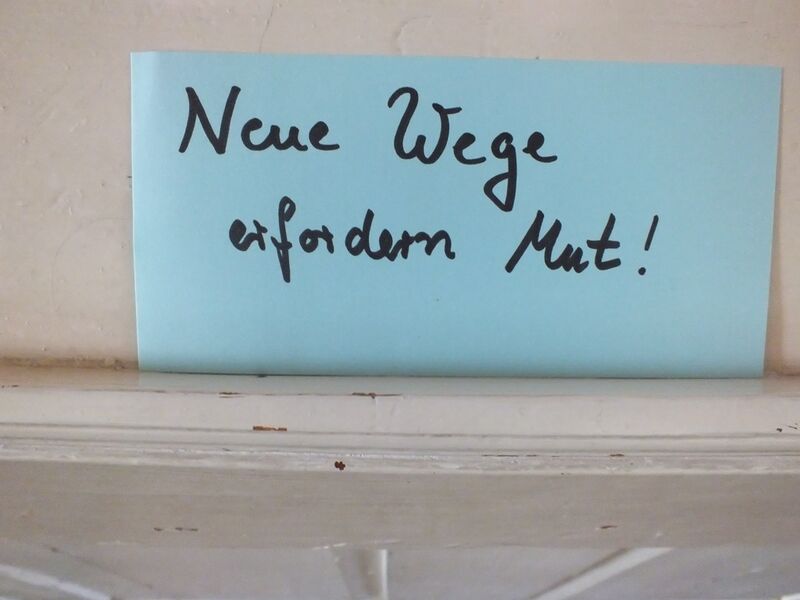 Neue Wege
erfordern Mut!